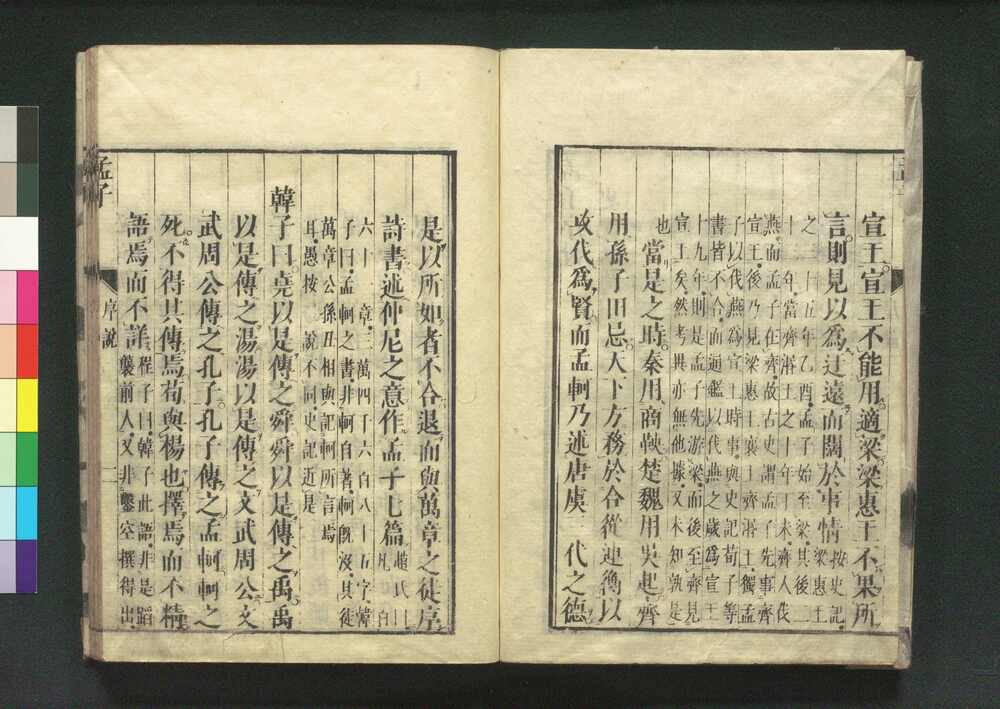 宣王宣王不能用適梁梁惠王不果所
言則見以爲迂遠而闊於事情
按史記
梁惠王
之三十五年乙酉孟子始至梁其後二
十三年當齊湣王之十年丁未齊人伐
燕而孟子在齊故古史謂孟子先事齊
宣王後乃見梁惠王襄王齊湣王獨孟
子以伐燕爲宣王時事與史記荀子等
書皆不合而通鑑以伐燕之歲爲宣王
十九年則是孟子先游梁而後至齊見
宣王矣然考異亦無他據又未知孰是
也
當是之時秦用商鞅楚魏用吳起齊
用孫子田忌天下方務於合從連衡以
攻伐爲賢而孟軻乃述唐虞三代之德
是以所如者不合退而與萬章之徒序
詩書述仲尼之意作孟子七篇
趙氏曰
凡二百
六十一章三萬四千六百八十五字韓
子曰孟軻之書非軻自著軻既沒其徒
萬章公孫丑相與記軻所言焉
耳愚按二說不同史記近是
韓子曰堯以是傳之舜舜以是傳之禹禹
以是傳之湯湯以是傳之文武周公文
武周公傳之孔子孔子傳之孟軻軻之
死不得其傳焉荀與楊也擇焉而不精
語焉而不詳
程子曰韓子此語非是蹈
襲前人又非鑿空撰得出
孟子
序說
二